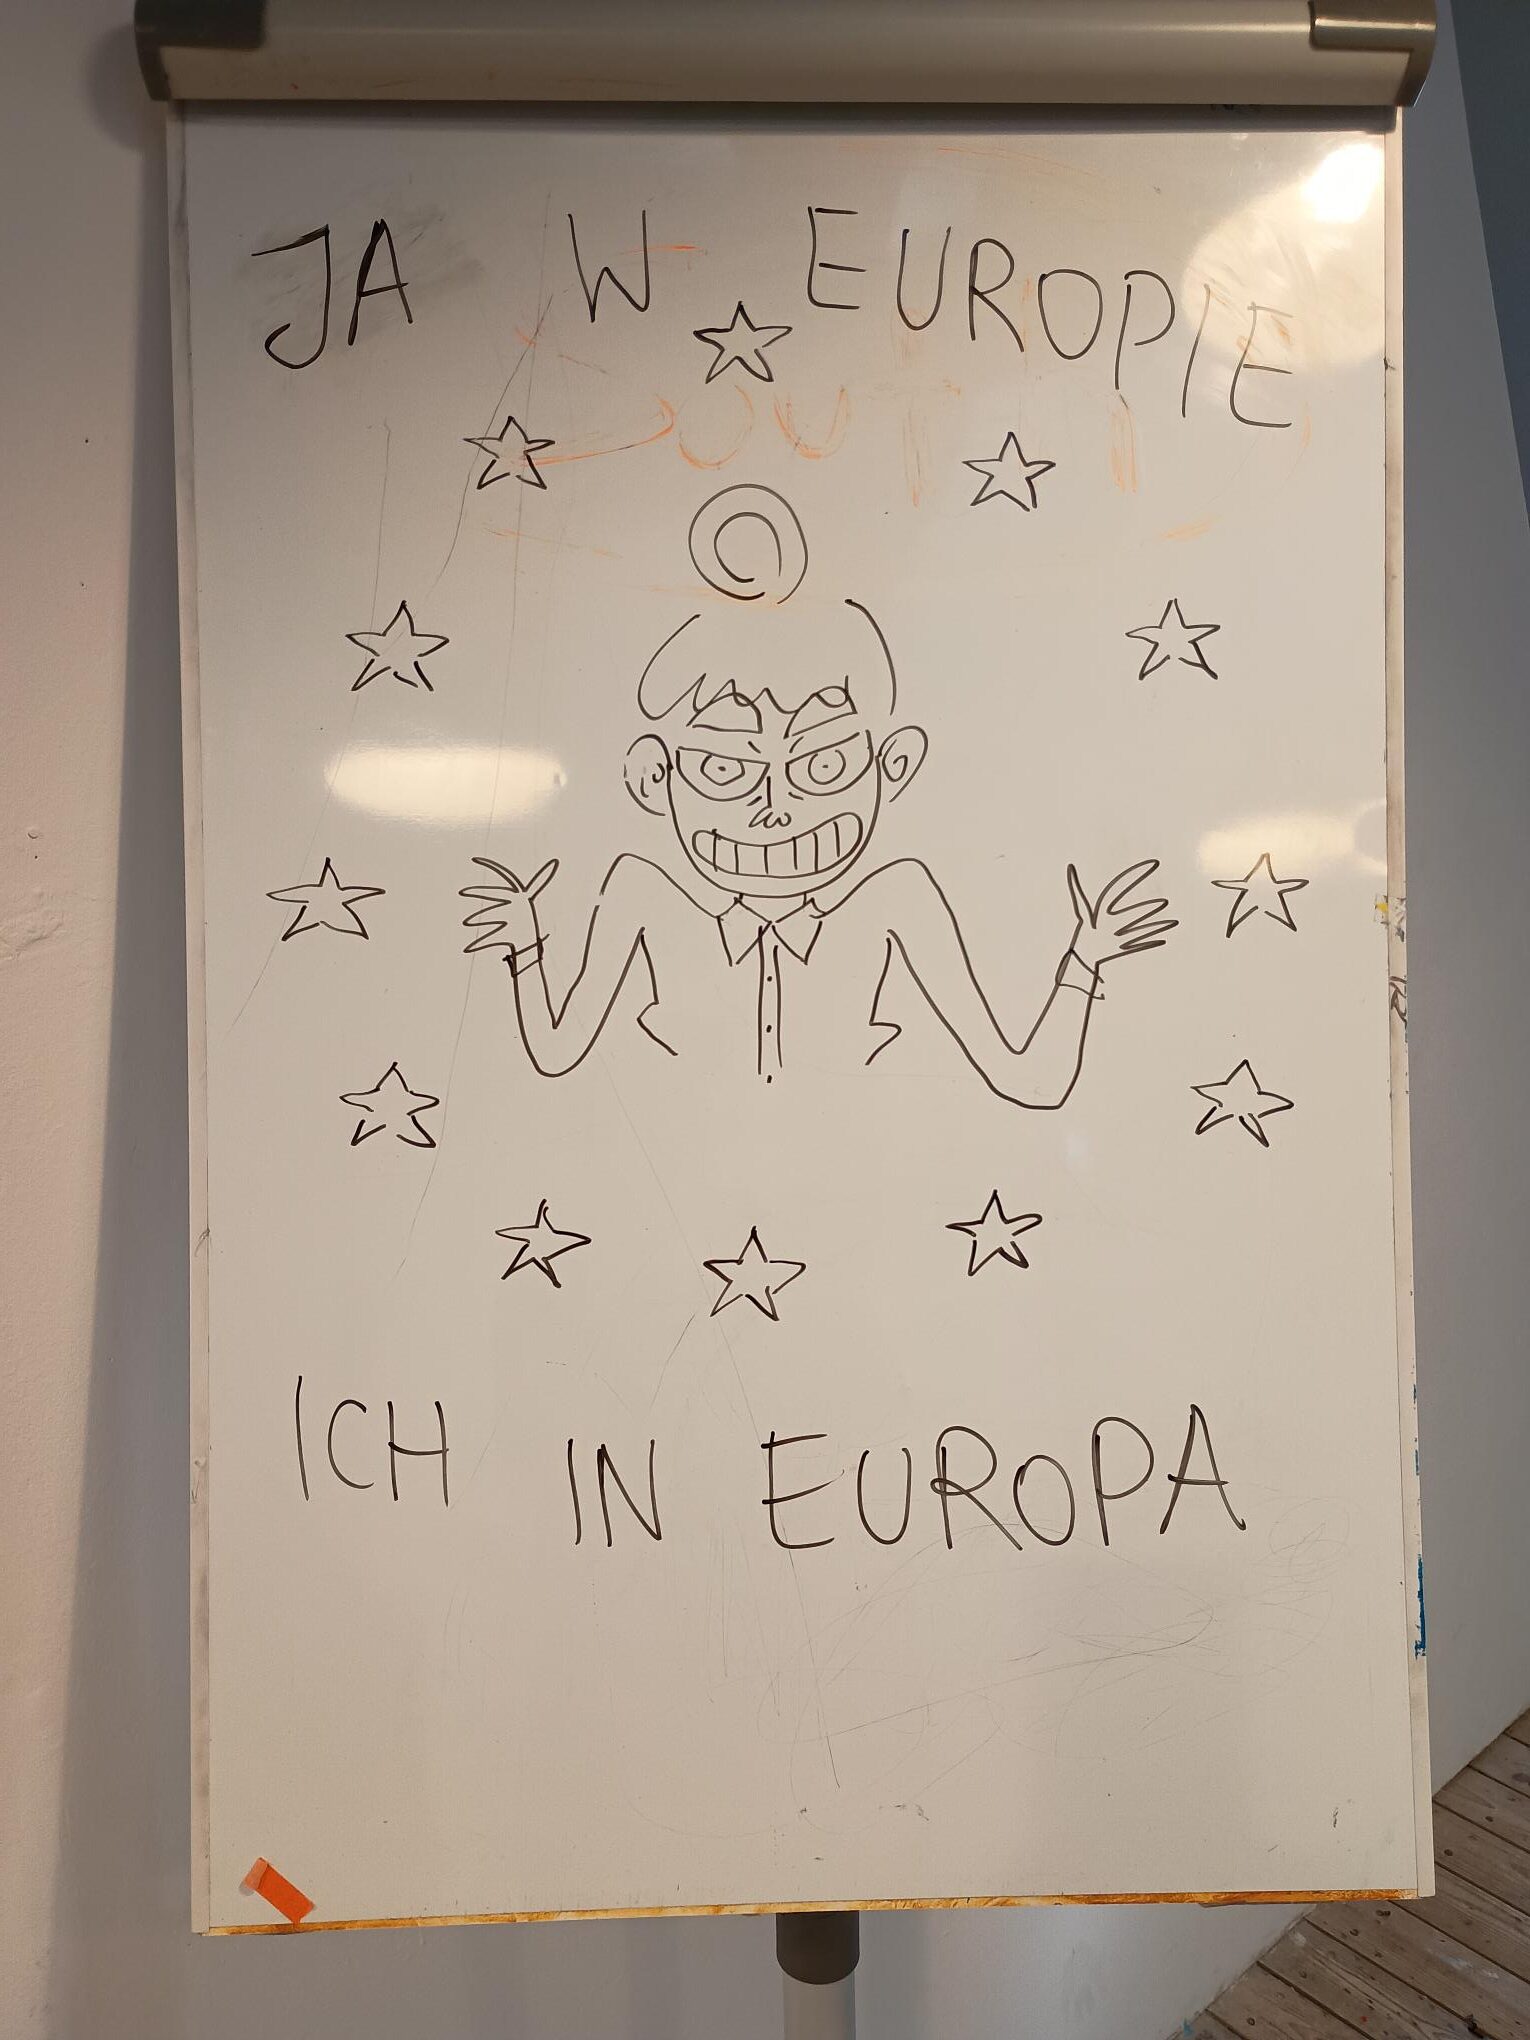 JA W EUROPIE
ICH IN EUROPA